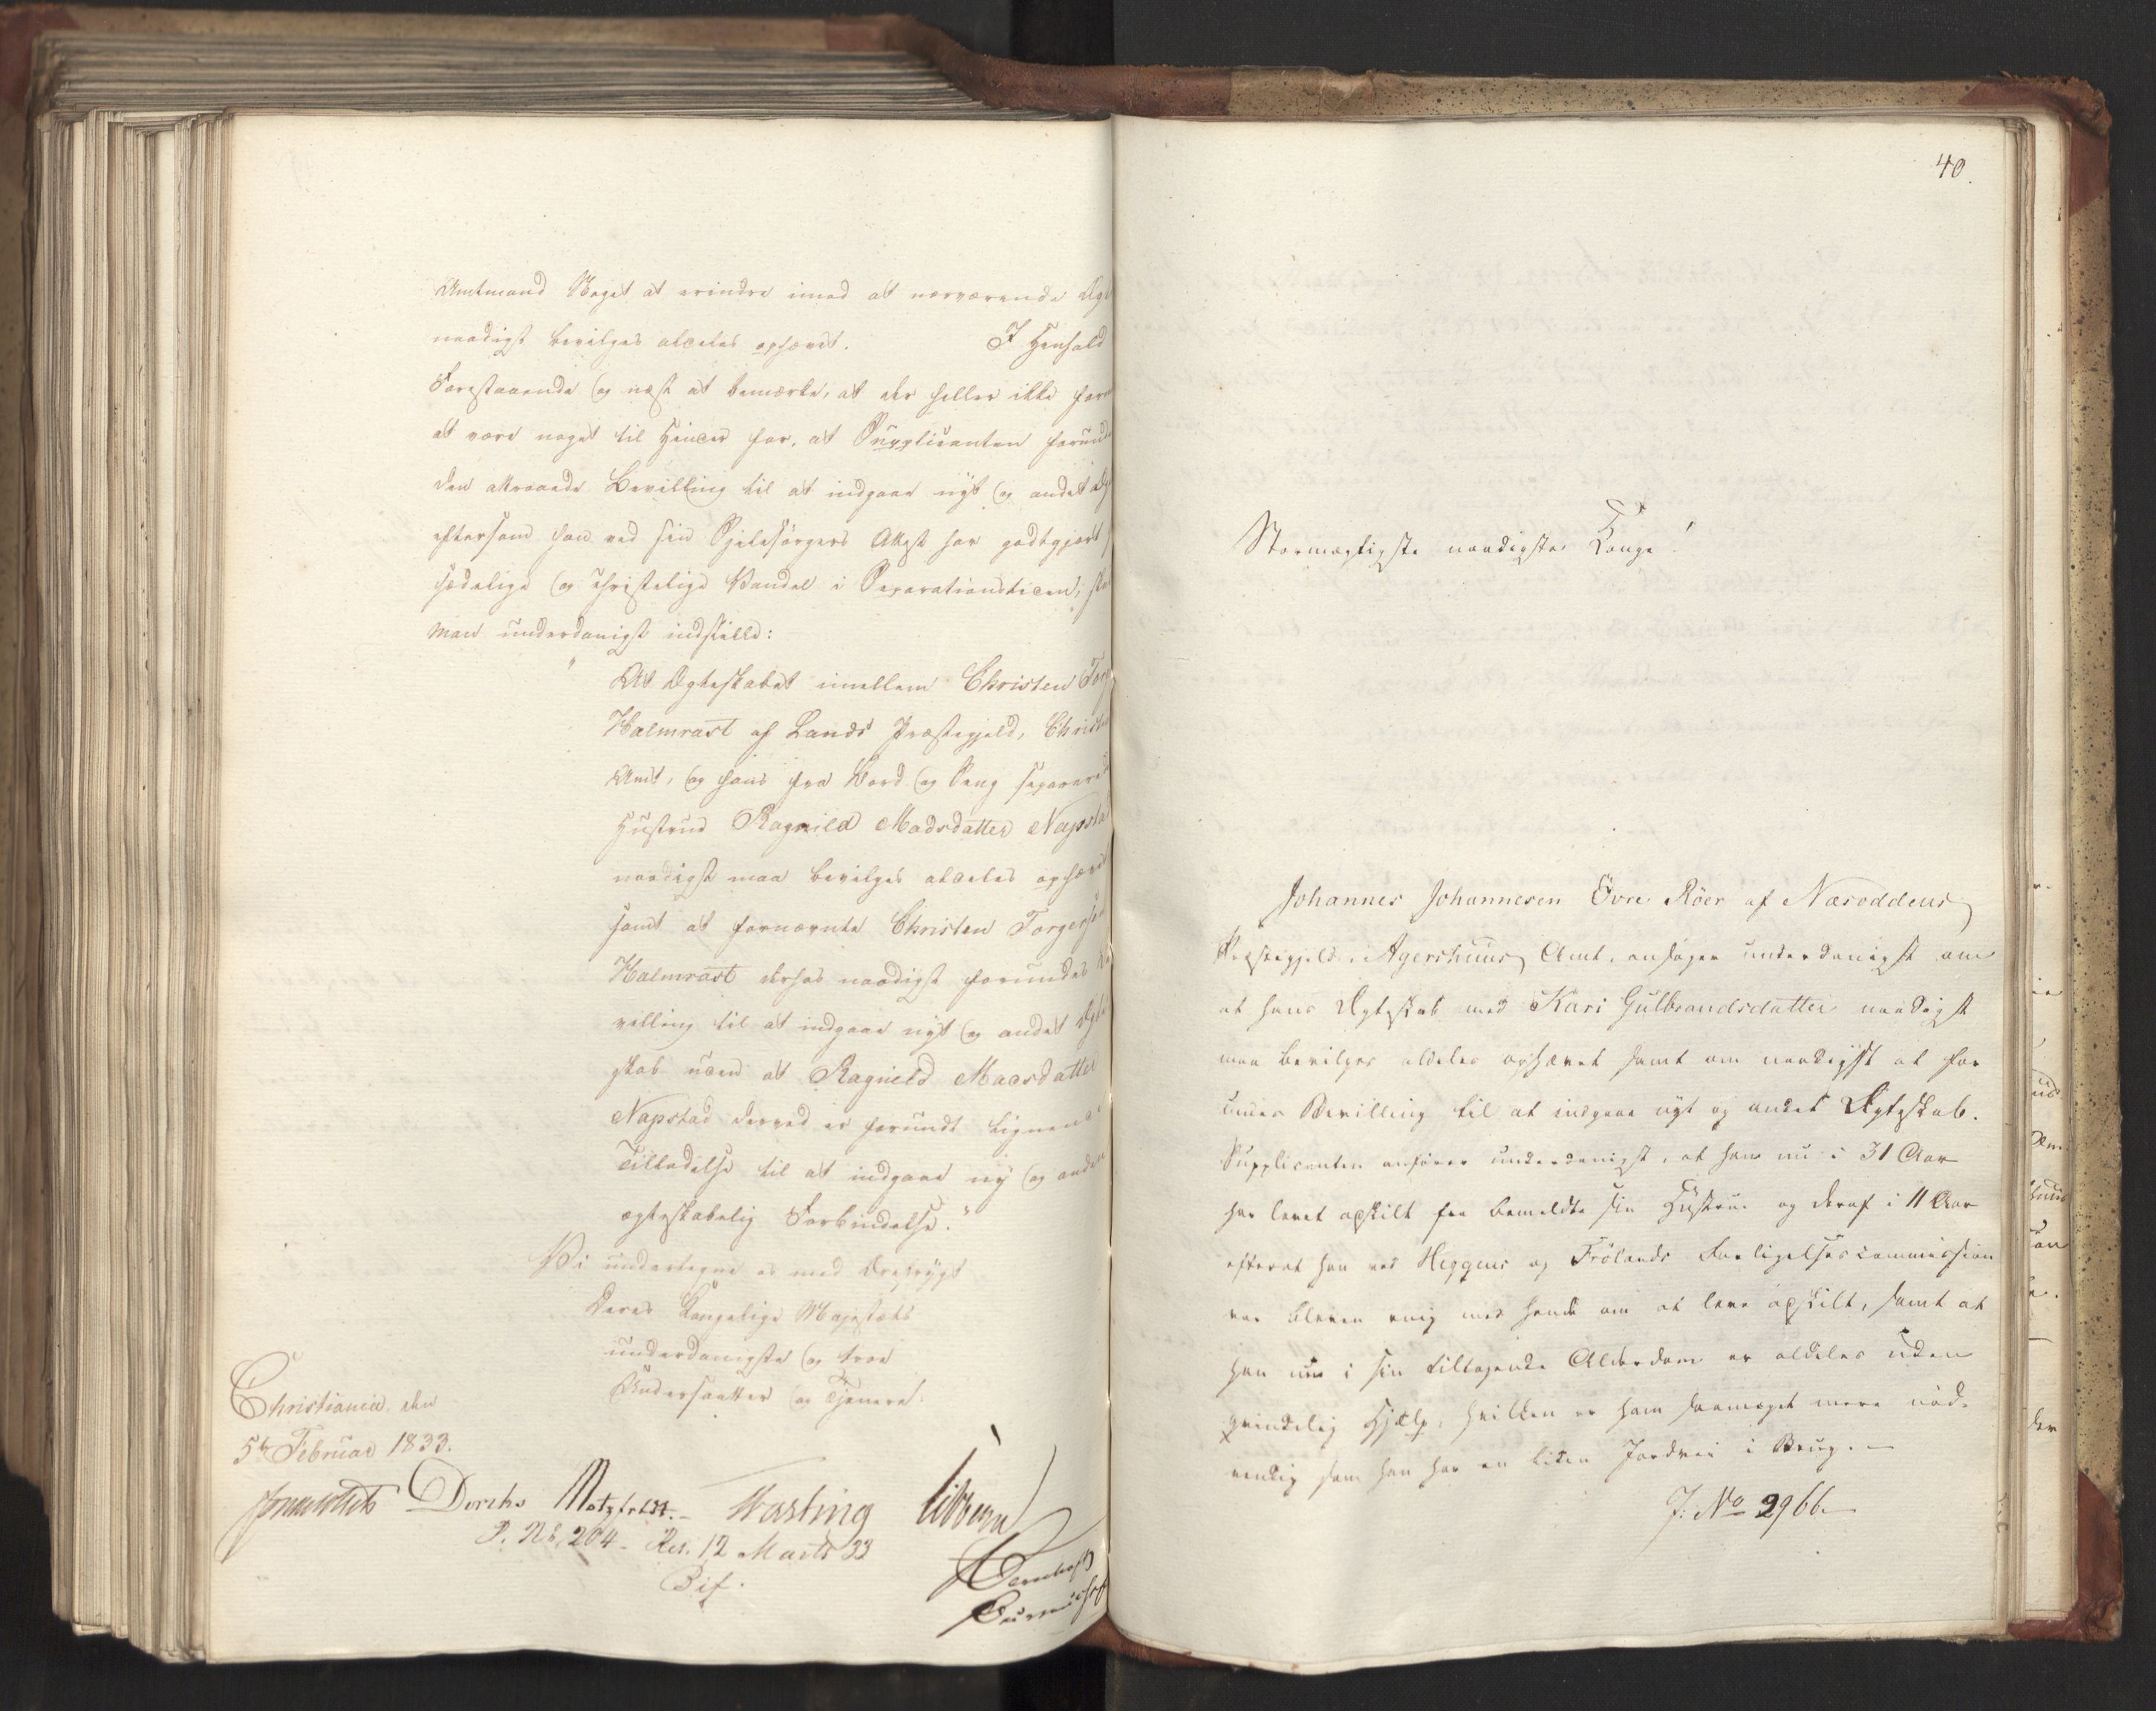 Amtmand Noget at erindre imod at nærværende Ægt
naadigst bevilges aldeles ophævet. I Henhold
Forestaaende og næst at bemærke, at der heller ikke
at være noget til Hinder for, at Supplicanten forund
den attraaede Bevilling til at indgaae nyt og andet Æg
eftersom han ved sin Sjelesörgers Attest har godtgjort
sædelige og christelige Vandel i Separationstiden,
man underdanigst indstille:
" At Ægteskabet imellem Christen Torg
Halmrast af Lands Præstegjeld, Christi
Amt, og hans fra Bord og Seng separere
Hustrue Ragnild Madsdatter Napsta
naadigst maa bevilges aldeles ophævet
samt at fornævnte Christen Torgerse
Halmrast derhos naadigst forundes Be
villing til at indgaae nyt og andet Ægte
skab uden at Ragnild Madsdatter
Napstad derved er forundt lignen
Tilladelse til at indgaae ny og anden
ægteskabelig Forbindelse."
Vi undertegne os med Dref­rygt
Deres Kongelige Majestæts
underdanigste og troe
Undersaatter og Tjenere.
Christiania, den
5te Februar 1833.
Diriks Motzfeldt. Fasting
P. No 204. Res. 12 Marts 33
Bif.
40.
Stormægtigste naadigste Konge!
Johannes Johannesen Övre Röer af Næsoddens
Præstegjeld, Agershuus Amt, ansøger underdanigst om
at hans Ægteskab med Kari Gulbrandsdatter naadigst
maa bevilges aldeles ophævet samt om naadigst at for
undes Bevilling til at indgaae nyt og andet Ægteskab.
Supplicanten anfører underdanigst, at han nu i 31 Aar
har levet adskilt fra bemeldte sin Hustrue og deraf i 11 Aar
efterat han ved Heggens og Frölands Forligelsescommission
var bleven enig med hende om at leve adskilt, samt at
han nu i sin tiltagende Alderdom er aldeles uden
qvindelig Hjælp, hvilken er ham saameget mere nöd-
vendig som han har en liden Jordvei i Brug.—
J: No 2966.—